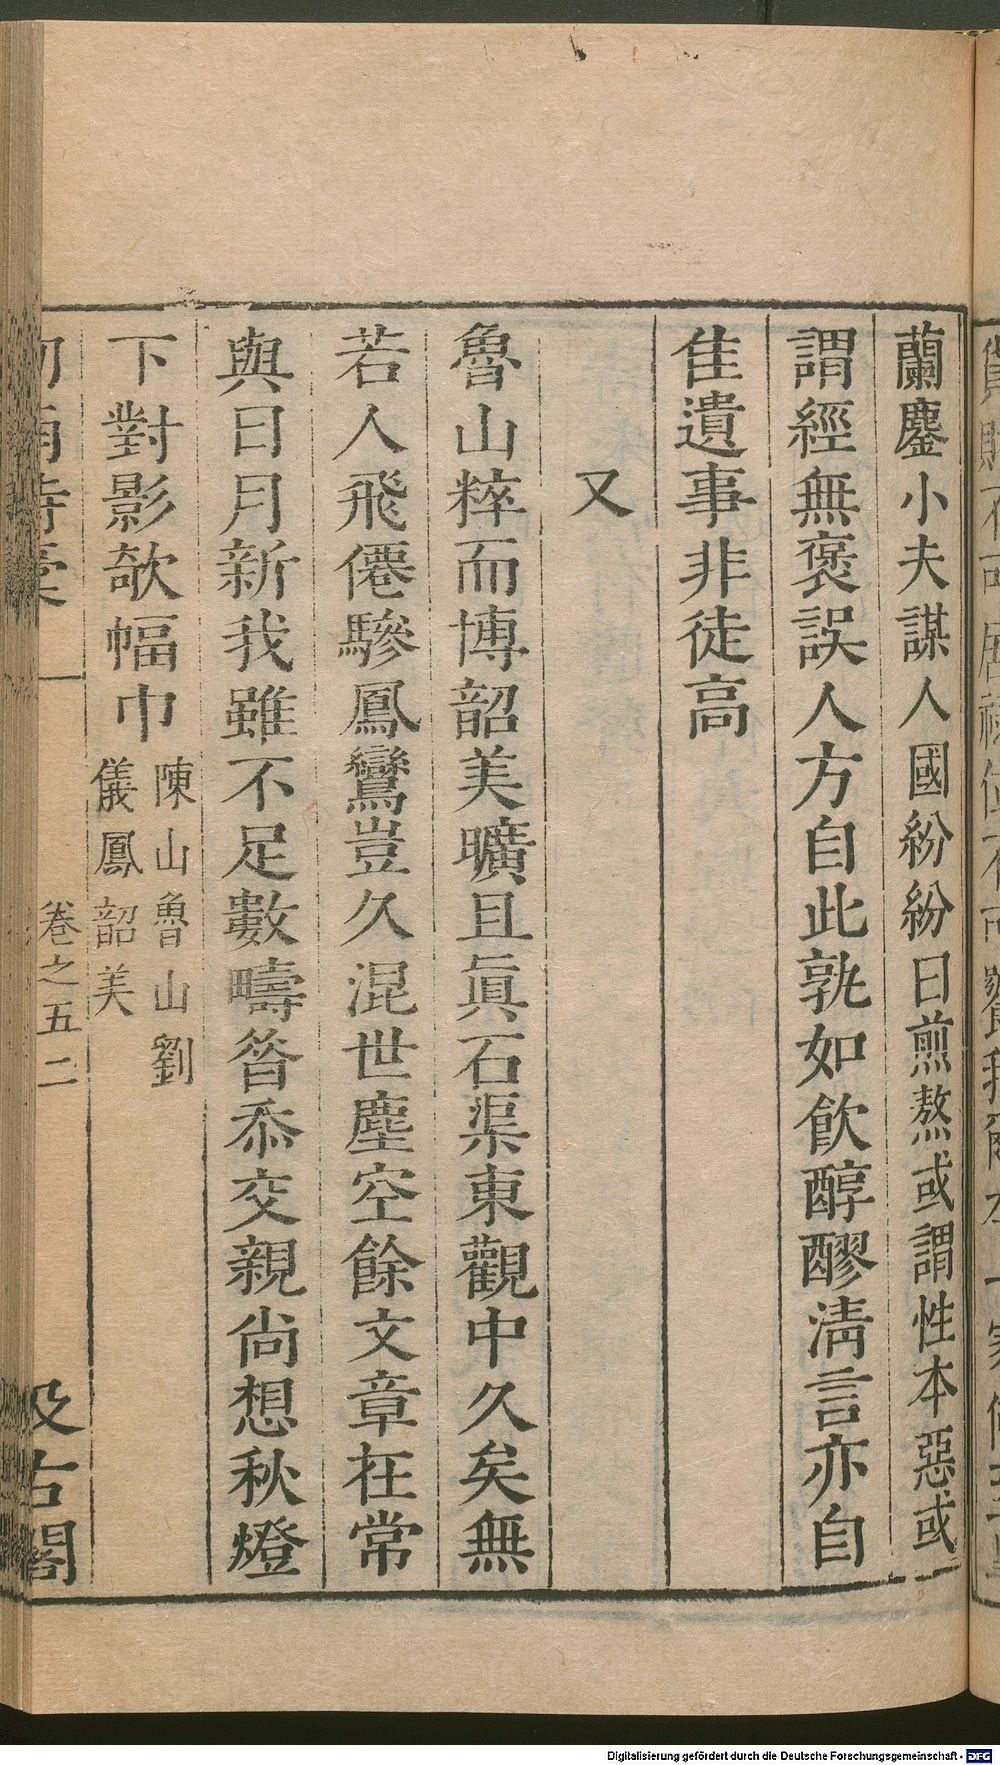 蘭鏖小夫謀人國紛紛日煎熬或謂性本惡或
謂經無褒誤人方自此孰如飲醇醪淸言亦自
佳遺事非徒高
又
魯山粹而博韶美曠且眞石渠東觀中久矣無
若人飛僊驂鳳鸞豈久混世塵空餘文章在常
與日月新我雖不足數疇昝忝交親尙想秋燈
下對影欹幅巾
陳山魯山劉
儀鳳韶美
卷之五 二
汲古閣
Digitalisierung gefördert durch die Deutsche Forschungsgemeinschaft - DFG